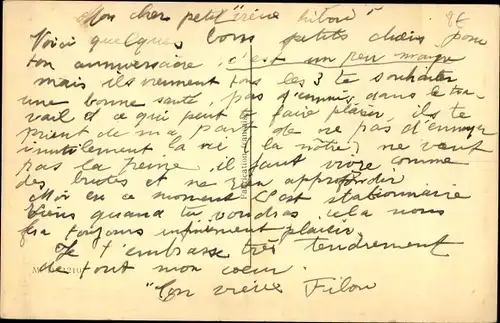 Mon cher petit "vieux filou"
8€
Voici quelques bons petits chiens pour
ton anniversaire, c'est un peu maigre
mais ils viennent tous les 3 te souhaiter
une bonne santé, pas d'ennuis dans le tra-
vail et ce qui peut te faire plaisir, ils te
prient de ma part de ne pas t'ennuyer
inutilement la vie (la nôtre) ne vaut
pas la peine, il faut vivre comme
des brutes et ne rien approfondir
Moi en ce moment c'est stationnaire
Viens quand tu voudras cela nous
fra toujours infiniment plaisir.
Je t'embrasse très tendrement
de tout mon coeur.
"Ton vieux Filou